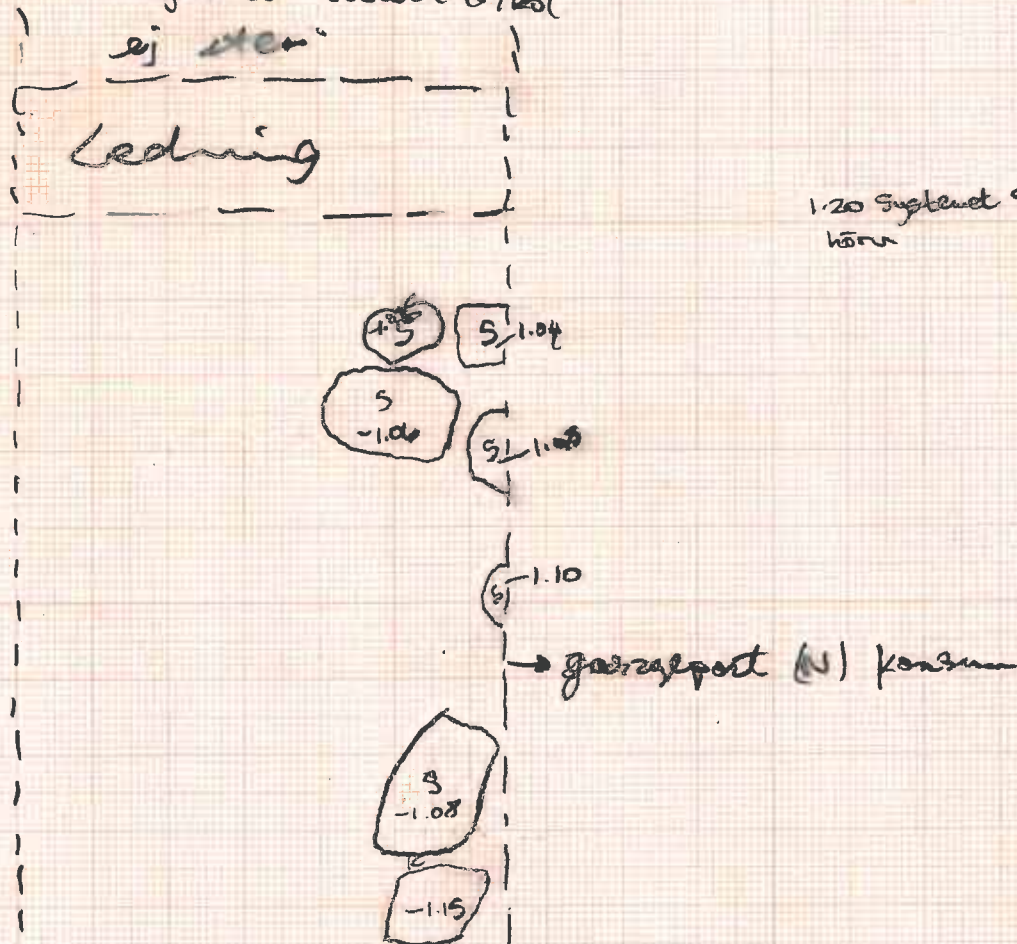 ej
Ledning
1.20 Systemet
hörn
S
S 1.04
S
-1.06
S
S 1.10
garageport (N) konsum
S
-1.08
-1.15